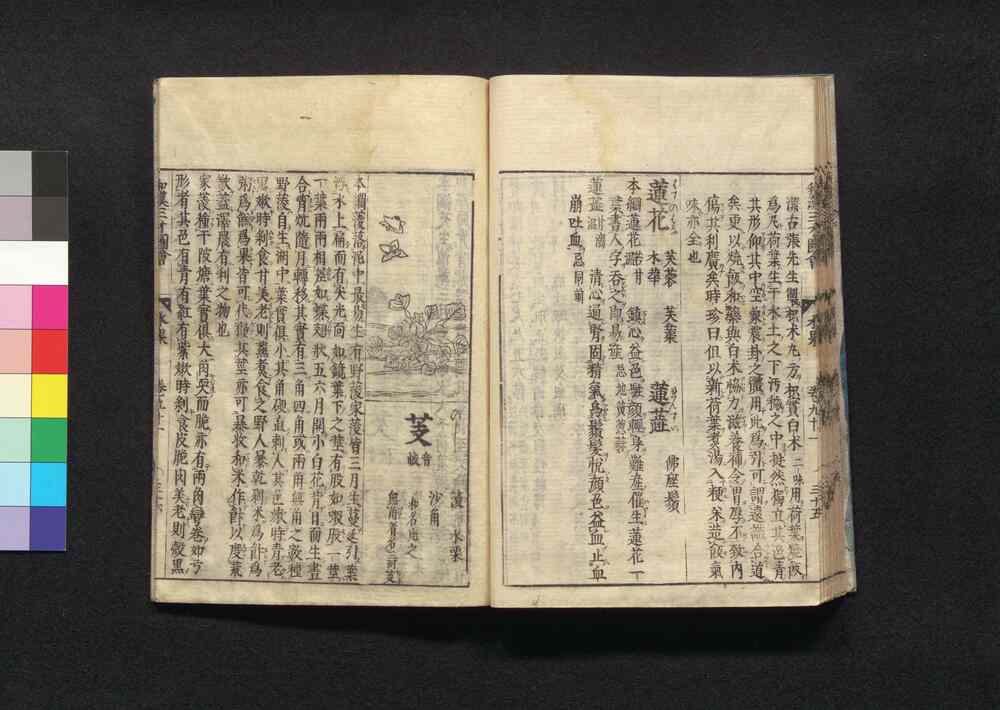 和漢三才圖會 水果 卷九十一 三十五
潔古張先生製枳朮丸方枳實白朮二味用荷葉燒飯
爲丸荷葉生于水土之下汚穢之中挺然獨立其色青
其形仰其中空象震卦之體用此爲引可謂遠識合道
矣更以燒飯和藥與白朮協力滋養補令胃厚不致內
傷其利廣矣時珍曰但以新荷葉煮湯入粳米造飯氣
味亦全也
蓮花 芙蓉 芙蕖 水華
蓮蕋 佛座鬚
本綱蓮花 苦甘 鎭心益色駐顏輕身難產催生蓮花一
葉書人字吞之即易產 忌地黃葱蒜
蓮蕋 甘濇 清心通腎固精氣烏鬚髮悅顏色益血止血
崩吐血 忌同前
芰 音
菱 水栗
沙角
和名比之
本綱菱湖泊中最易生有野菱家菱皆三月生蔓延引葉
浮水上扁而有尖光面如鏡葉下之莖有股如蝦股一莖
一葉兩兩相差如蝶翅狀五六月開小白花背日而生晝
合宵炕隨月轉移其實有三角四角或兩角無角之數種
野菱自生湖中葉實俱小其角硬直刺人其色嫩時青老
黑嫩時剝食甘美老則蒸煮食之野人暴乾剁米爲飯爲
粥爲餻爲果皆可代糧其莖亦可暴收和米作飯以度荒
歉蓋澤農有利之物也
家菱種于陂塘葉實俱大角耎而脆亦有兩角彎卷如弓
形者其色有青有紅有紫嫩時剝食皮脆肉美老則殼黑